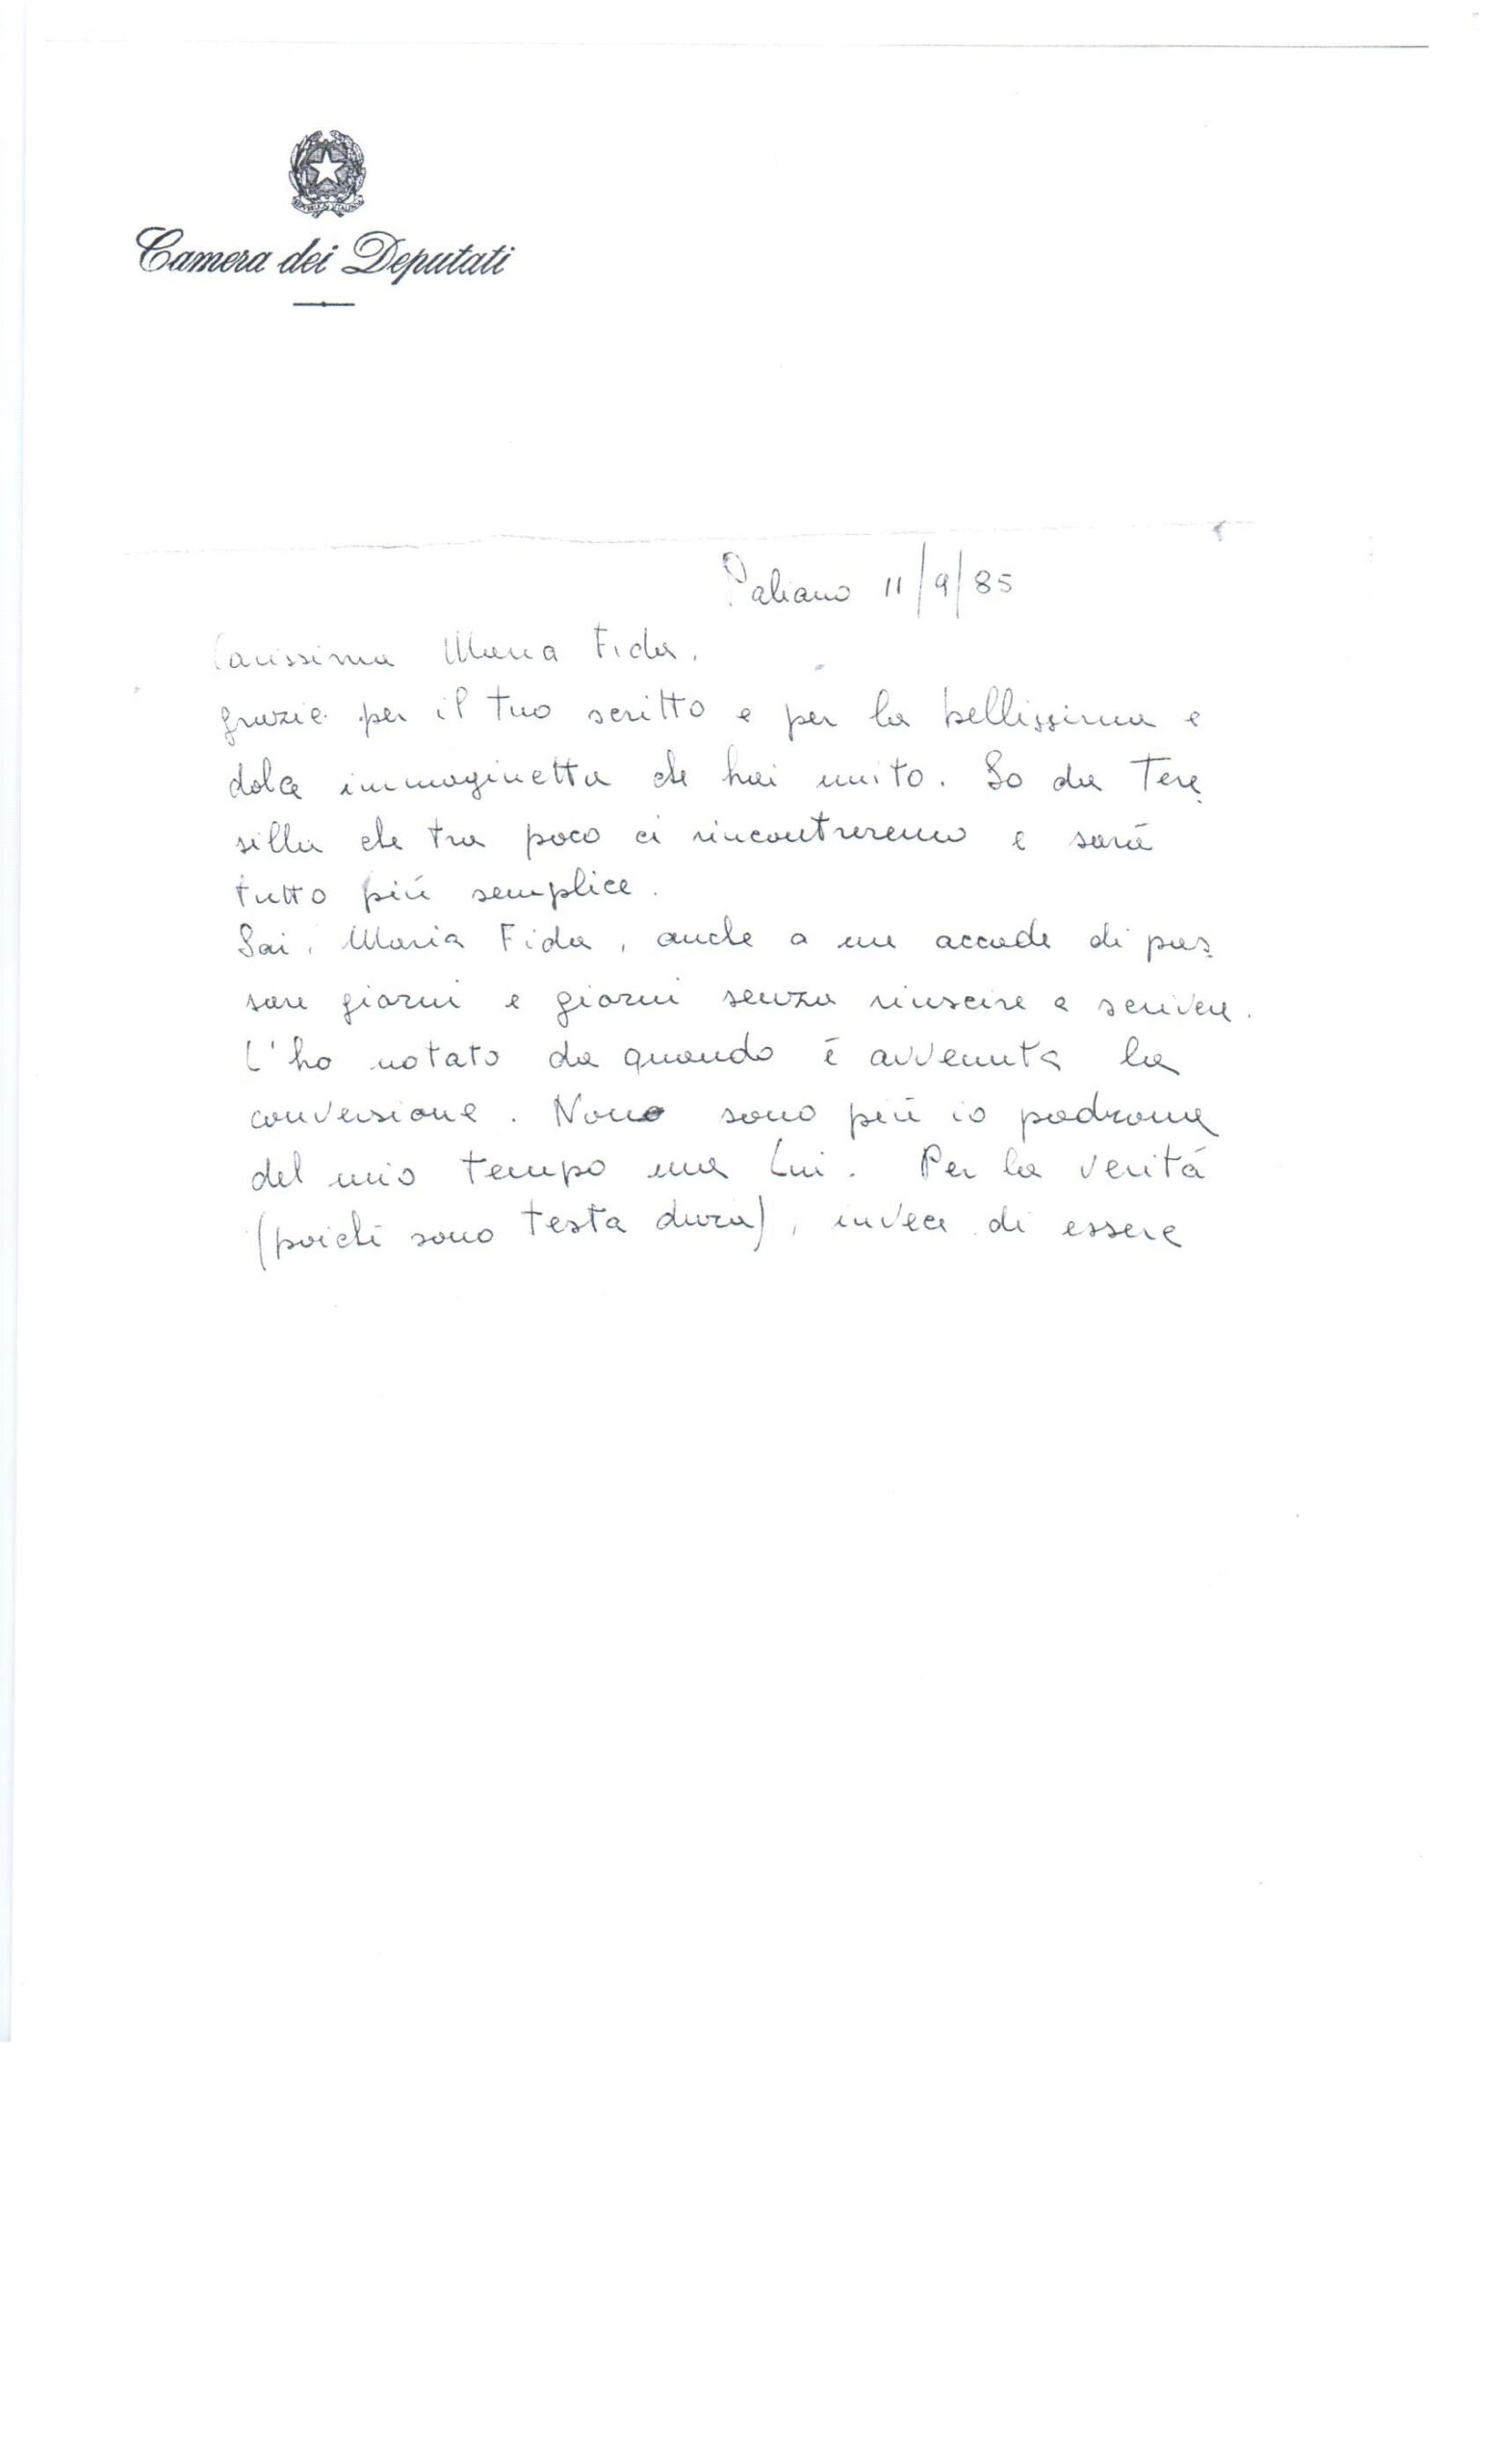 Camera dei Deputati
Paliano 11/9/85
Carissima Maria Fida.
grazie per il tuo scritto e per la bellissima e
dolce immaginetta che hai unito. So da Tere
silla che tra poco ci rincontreremo e sará
tutto piú semplice.
Sai, Maria Fida, anche a me accade di pas
sare giorni e giorni senza riuscire a scrivere.
L'ho notato da quando é avvenuta la
conversione. Non sono piú io padrone
del mio tempo ma Lui. Per la veritá
(poiché sono testa dura), invece di essere